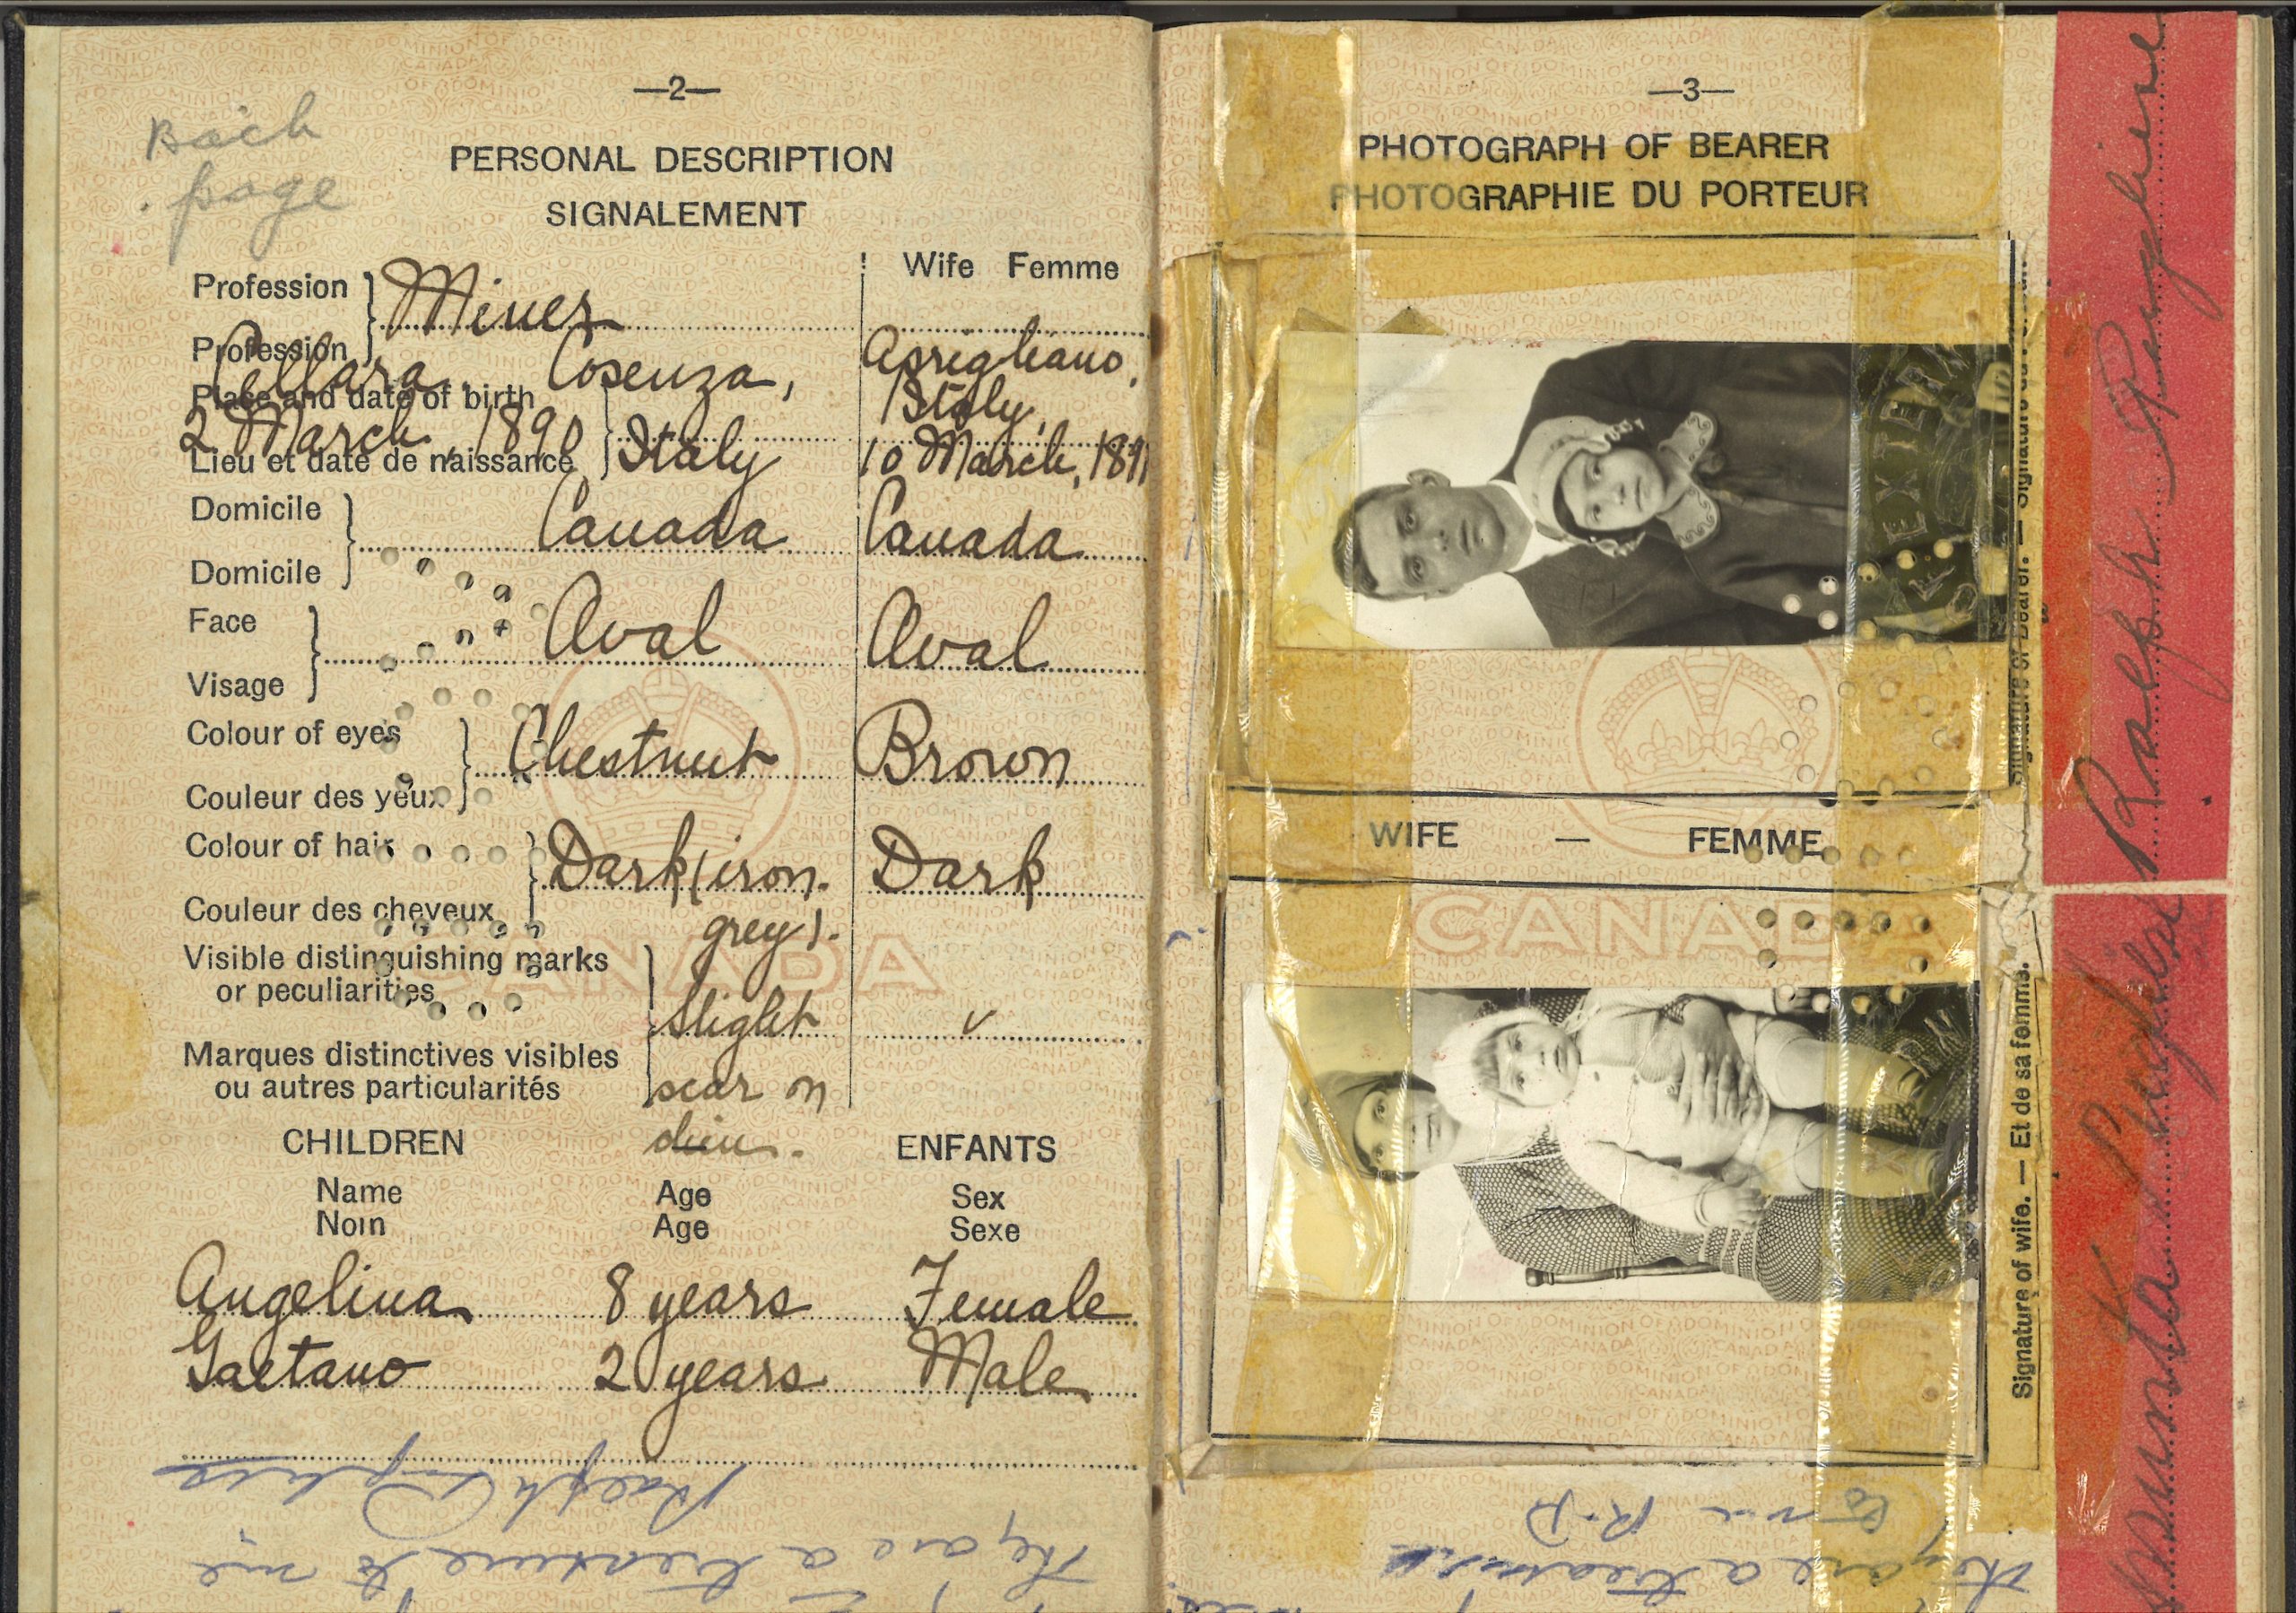 —2—
Back
page
PERSONAL DESCRIPTION
SIGNALEMENT
Wife Femme
Profession
Profession
Miner
Place and date of birth
Lieu et date de naissance
Pellara, Cosenza,
2 March, 1890 Italy
Aprigliano,
Italy,
10 March, 1891
Domicile
Domicile
Canada
Canada
Face
Visage
Oval
Oval
Colour of eyes
Couleur des yeux
Chestnut
Brown
Colour of hair
Couleur des cheveux
Dark (iron
grey).
Dark
Visible distinguishing marks
or peculiarities
Marques distinctives visibles
ou autres particularités
Slight
scar on
chin.
CHILDREN
ENFANTS
Name Age Sex
Nom Age Sexe
Angelina 8 years Female
Gaetano 2 years Male
Ralph Pugliese
They are a treasure to me
—3—
PHOTOGRAPH OF BEARER
PHOTOGRAPHIE DU PORTEUR
EXTER
Signature of Bearer. — Signature du
Ralph Pugliese
WIFE — FEMME
CANADA
Signature of wife. — Et de sa femme.
Pugliese
to me R.P
They are a treasure